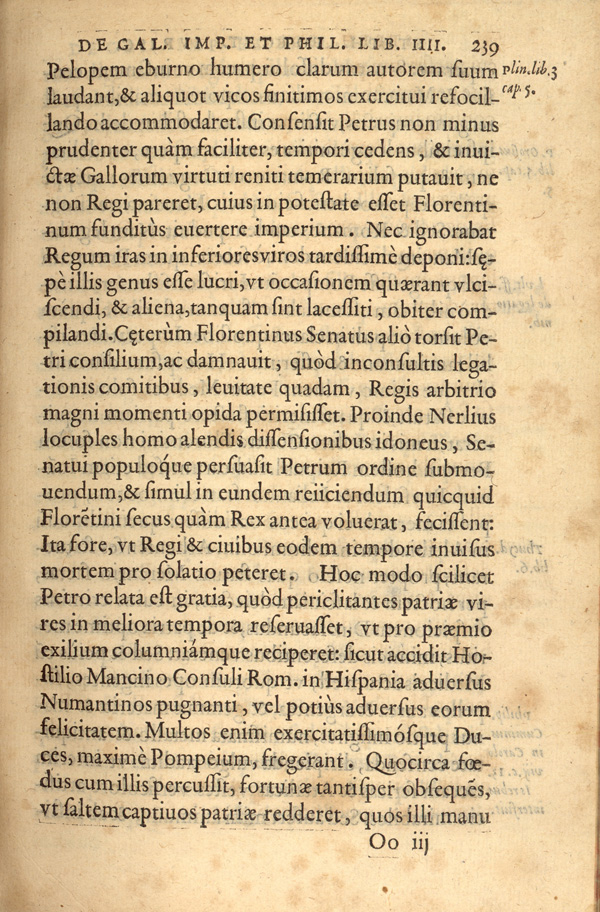 DE GAL. IMP. ET PHIL. LIB. IIII. 239
Pelopem eburno humero clarum autorem ſuum
plin. lib. 3
cap. 5.
laudant,& aliquot vicos finitimos exercitui refocil-
lando accommodaret. Conſenſit Petrus non minus
prudenter quàm faciliter, tempori cedens, & inui-
ctæ Gallorum virtuti reniti temerarium putauit, ne
non Regi pareret, cuius in poteſtate eſſet Florenti-
num funditùs euertere imperium. Nec ignorabat
Regum iras in inferiores viros tardiſſimè deponi:ſę-
pè illis genus eſſe lucri, vt occaſionem quærant vlci-
ſcendi, & aliena,tanquam ſint laceſſiti, obiter com-
pilandi. Cęterùm Florentinus Senatus aliò torſit Pe-
tri conſilium,ac damnauit, quòd inconſultis lega-
tionis comitibus, leuitate quadam, Regis arbitrio
magni momenti opida permiſiſſet. Proinde Nerlius
locuples homo alendis diſſenſionibus idoneus, Se-
natui populóque perſuaſit Petrum ordine ſubmo-
uendum,& ſimul in eundem reiiciendum quicquid
Florētini ſecus quàm Rex antea voluerat, feciſſent:
Ita fore, vt Regi & ciuibus eodem tempore inuiſus
mortem pro ſolatio peteret. Hoc modo ſcilicet
Petro relata eſt gratia, quòd periclitantes patriæ vi-
res in meliora tempora reſeruaſſet, vt pro præmio
exilium columniámque reciperet: ſicut accidit Ho-
ſtilio Mancino Conſuli Rom. in Hiſpania aduerſus
Numantinos pugnanti, vel potiùs aduerſus eorum
felicitatem. Multos enim exercitatiſſimóſque Du-
ces, maximè Pompeium, fregerant. Quocirca fœ-
dus cum illis percuſſit, fortunæ tantiſper obſequēs,
vt ſaltem captiuos patriæ redderet, quos illi manu
Oo iij